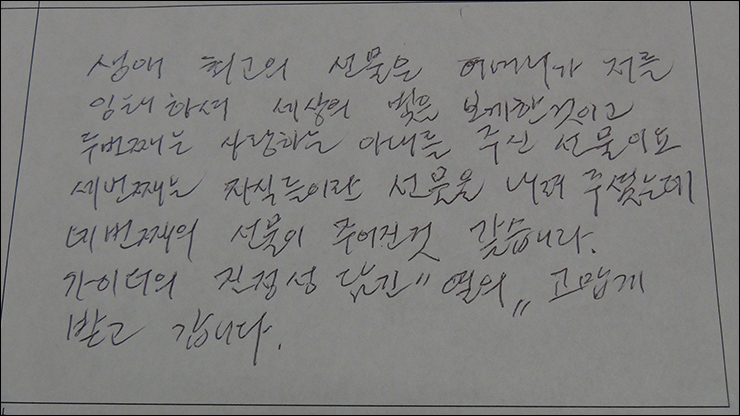 생애 최고의 선물은 어머니가 저를
잉태하셔 세상의 빛을 보게한것이고
두번째는 사랑하는 아내를 주신 선물이요
세번째는 자식들이란 선물을 내려 주셨는데
네번째의 선물이 주어진것 같습니다.
가이더의 진정성 담긴 "열의" 고맙게
받고 갑니다.